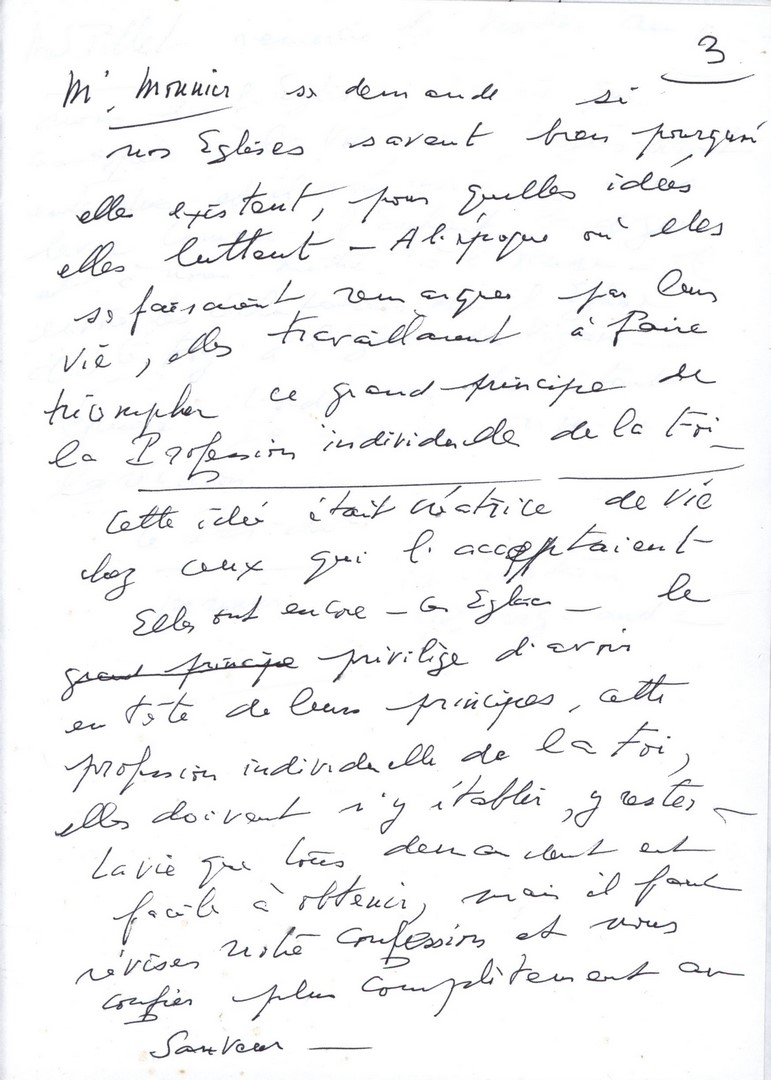 3
Mr. Monnier se demande si
nos Eglises savent bien pourquoi
elles existent, pour quelles idées
elles luttent - A l'époque où elles
se faisaient remarquer par leur
vie, elles travaillaient à faire
triompher ce grand principe de
la Profession individuelle de la Foi_
Cette idée était créatrice de vie
chez ceux qui l'acceptaient -
Elles ont encore - ces Eglises - le
grand principe privilège d'avoir
en tête de leurs principes, cette
profession individuelle de la Foi,
elles doivent s'y établir, y rester -
La vie que tous demandent est
facile à obtenir, mais il faut
réviser notre Confession et nous
confier plus complètement au
Sauveur -